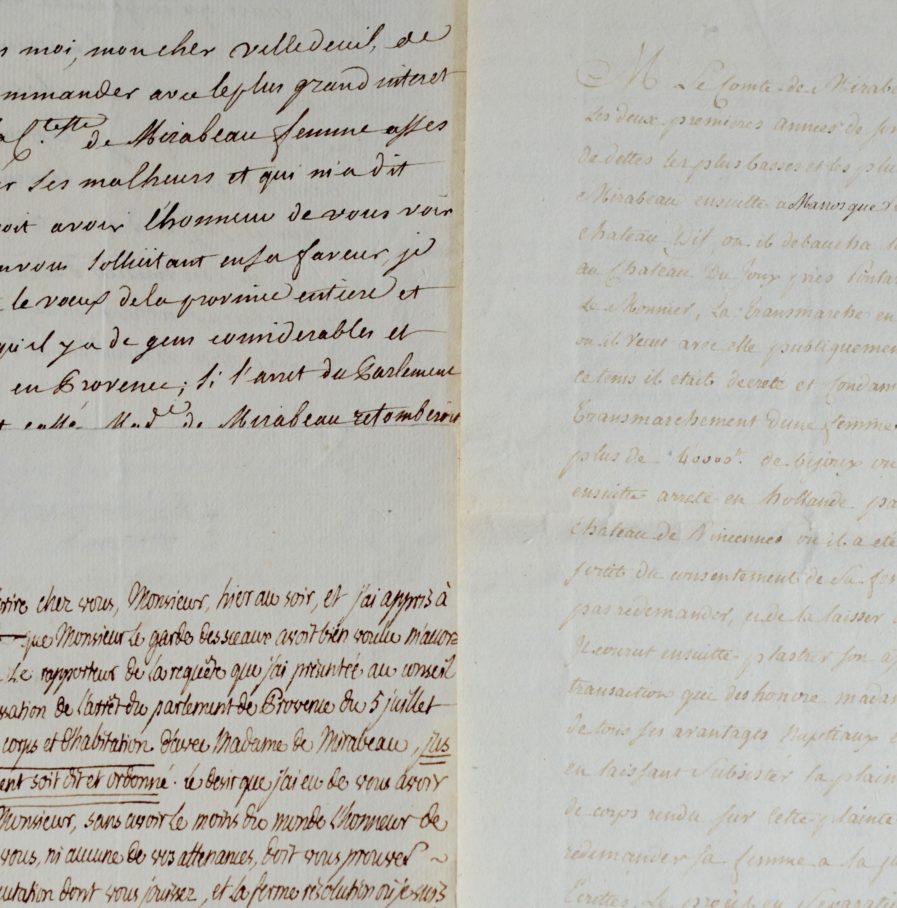 moi, mon cher villedeuil, de
ommander avec le plus grand interet
la C.tesse de Mirabeau femme asses
ses malheurs et qui m'a dit
oit avoir l'honneur de vous voir
sollicitant en sa faveur, je
le vœux de la province entiere et
qu'il y a de gens considerables et
en Provence; si l'arret du Parlement
cassé Mad.e de Mirabeau retomberoit
crire chez vous, Monsieur, hier au soir, et j'ai appris à
que Monsieur le garde des sceaux avoit bien voulu m'accor
Le rapporteur de la requête que j'ai présentée au conseil
ssation de l'arrêt du parlement de Provence du 5 juillet
corps et d'habitation d'avec Madame de Mirabeau, jus
ent soit dit et ordonné. Le desir que j'ai eu de vous avoir
Monsieur, sans avoir le moins du monde l'honneur de
vous, ni aucune de vos attenances, doit vous prouver
putation dont vous jouissez, et la ferme résolution où je suis
M Le Comte de Mirabe
Les deux premieres années de son
de dettes les plus basses et les plu
Mirabeau ensuitte a Manosque
chateau Dif, ou il debaucha
au Chateau Du Joux près Pontar
Le Monnier, La transmarcha en
ou il vecut avec elle publiquemen
ce tems il etait decreté et Condam
transmarchement d'une femme
plus de 40000tt de bijoux
ensuitte arreté en hollande
chateau de Vincennes ou il a eté
sortit du consentement de sa fem
pas redemander, et de la laisser
Il courut ensuitte plastrer son
transaction que deshonore madam
de tous ses avantages Nuptiaux
en laissant Subsister la plain
de corps rendu sur cette plainte
redemander sa femme a la ju